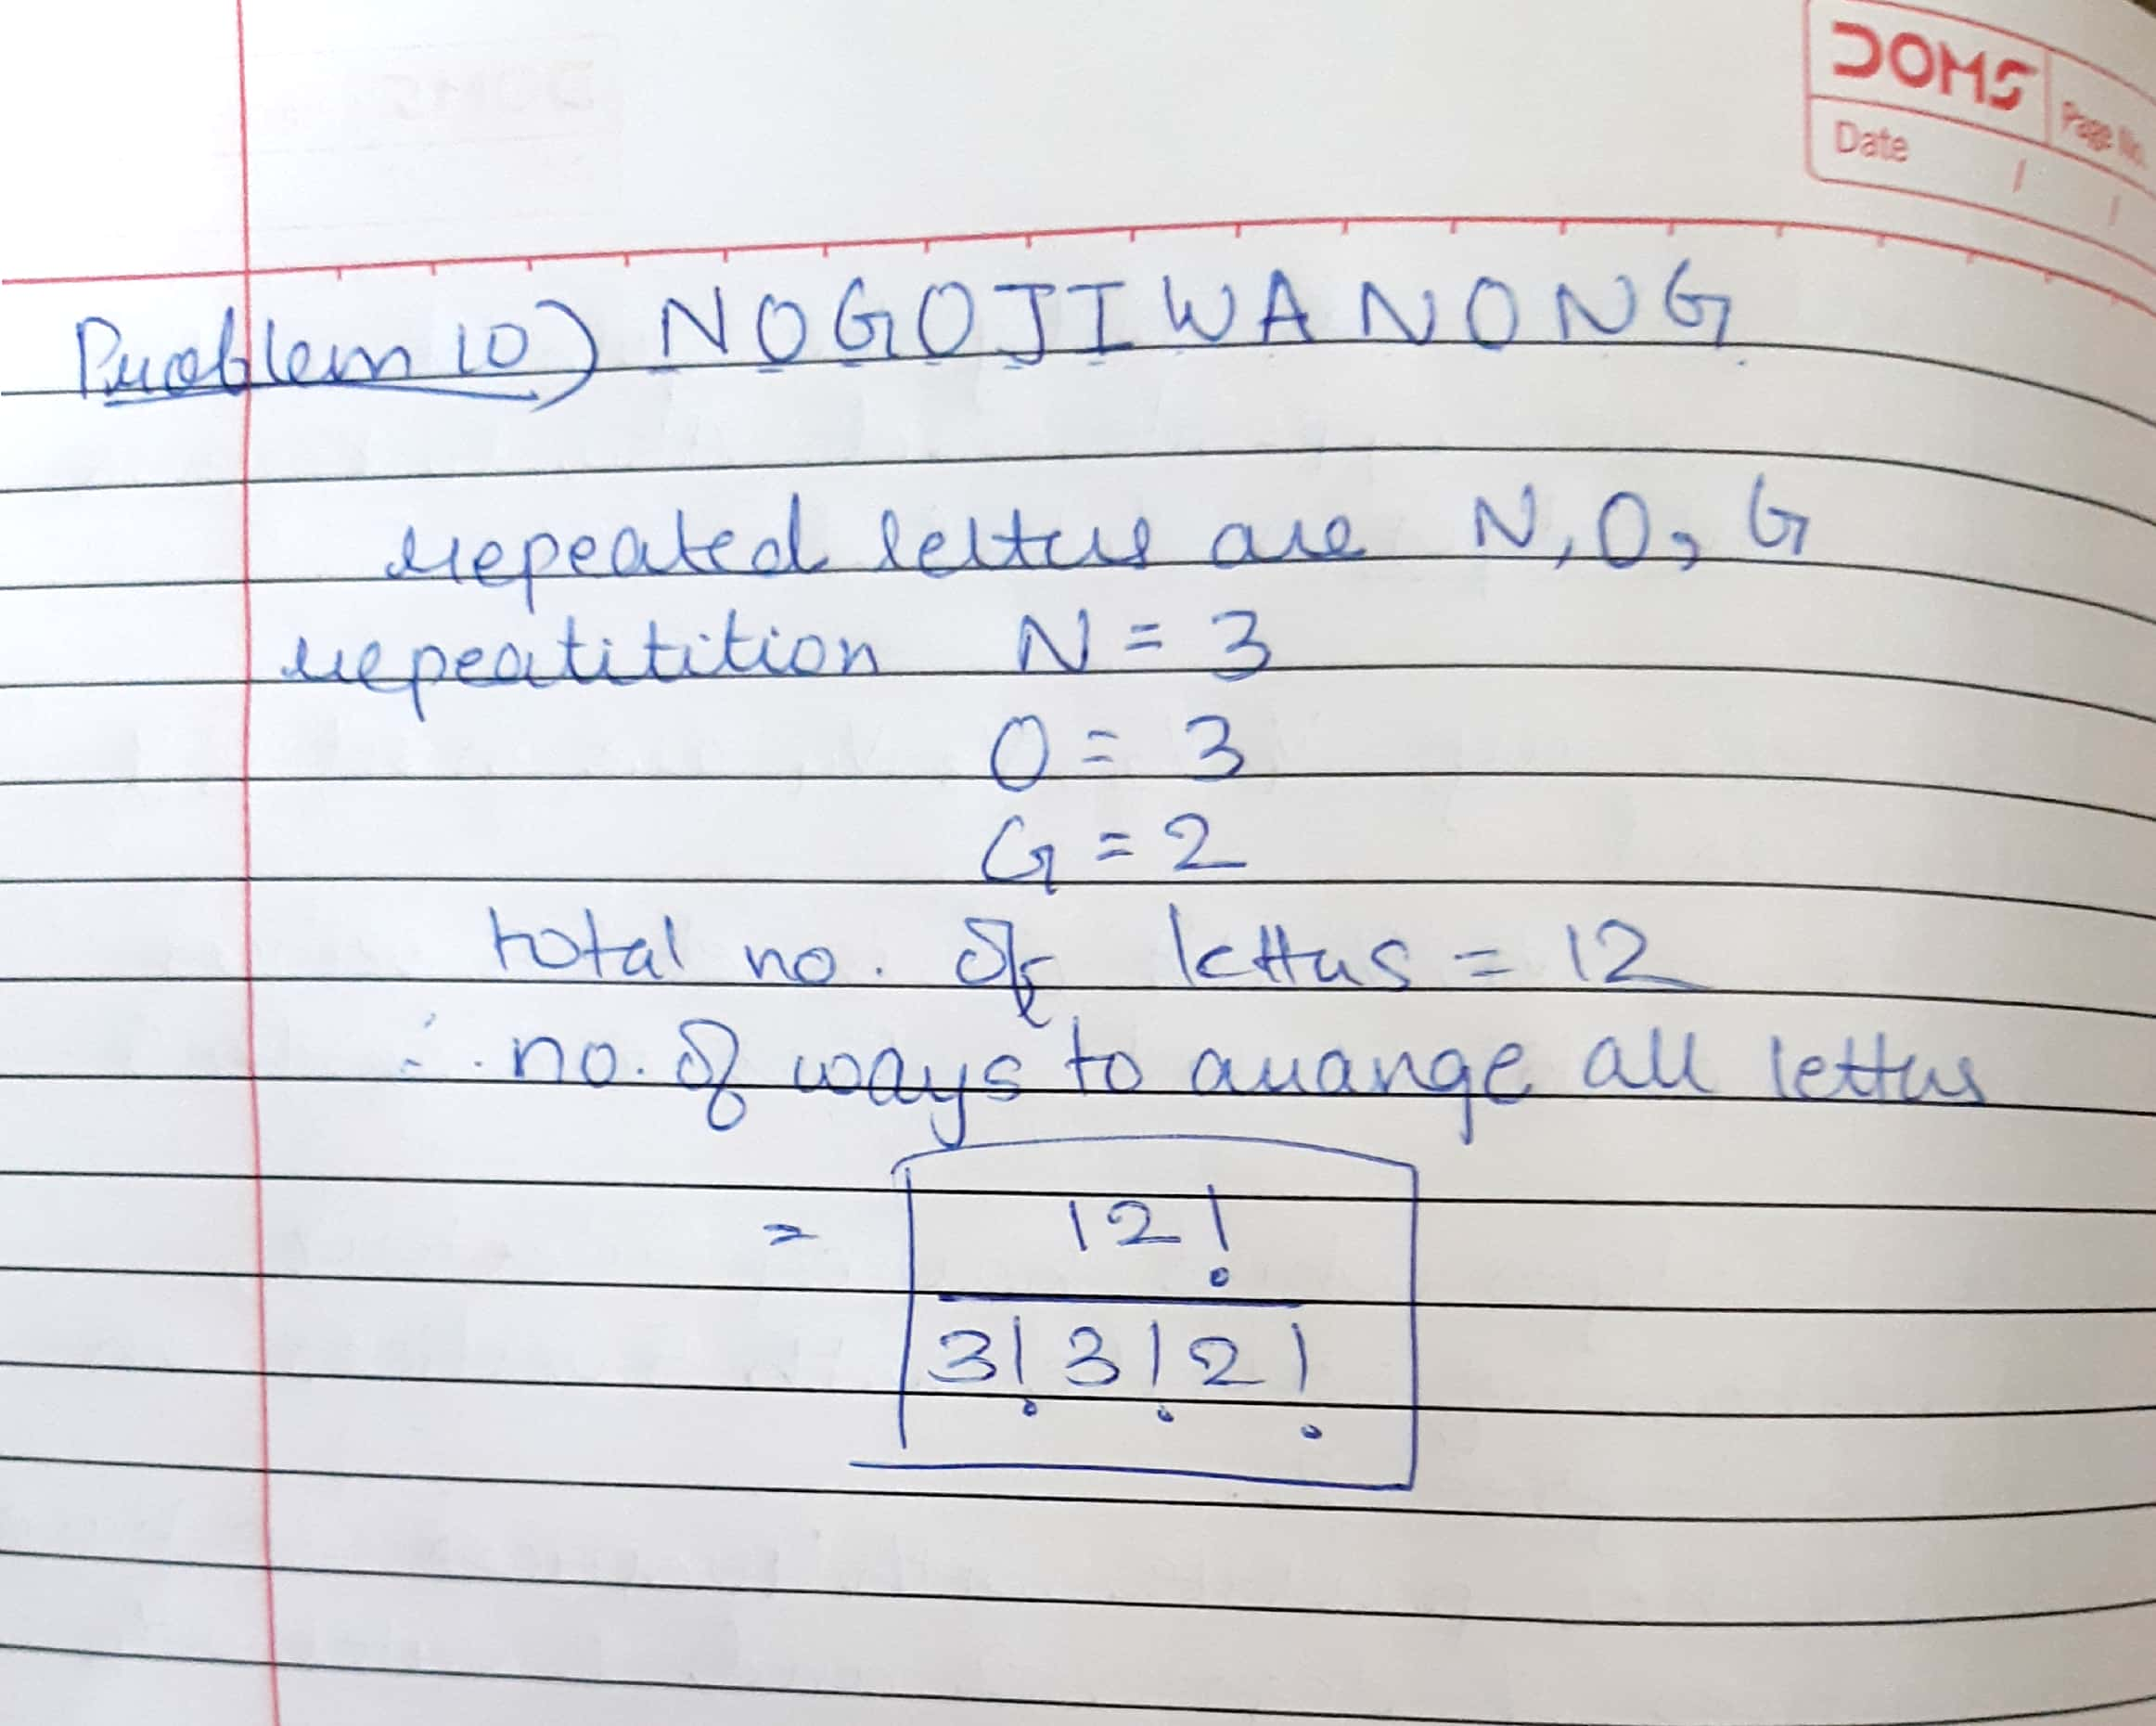 DOMS
Page No.
Date / /
Problem 10) NOGOJIWANONG
repeated letters are N, O, G
repeatitition N = 3
O = 3
G = 2
total no. of letters = 12
∴ no. of ways to arrange all letters
= 12!
3! 3! 2!